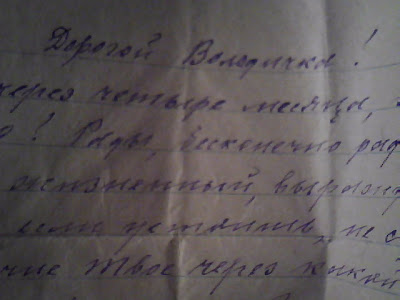 Дорогой Володичка!
через четыре месяца,
! Рады, бесконечно рад
жизненный, выразит
если устанешь, не с
чие твое через какой